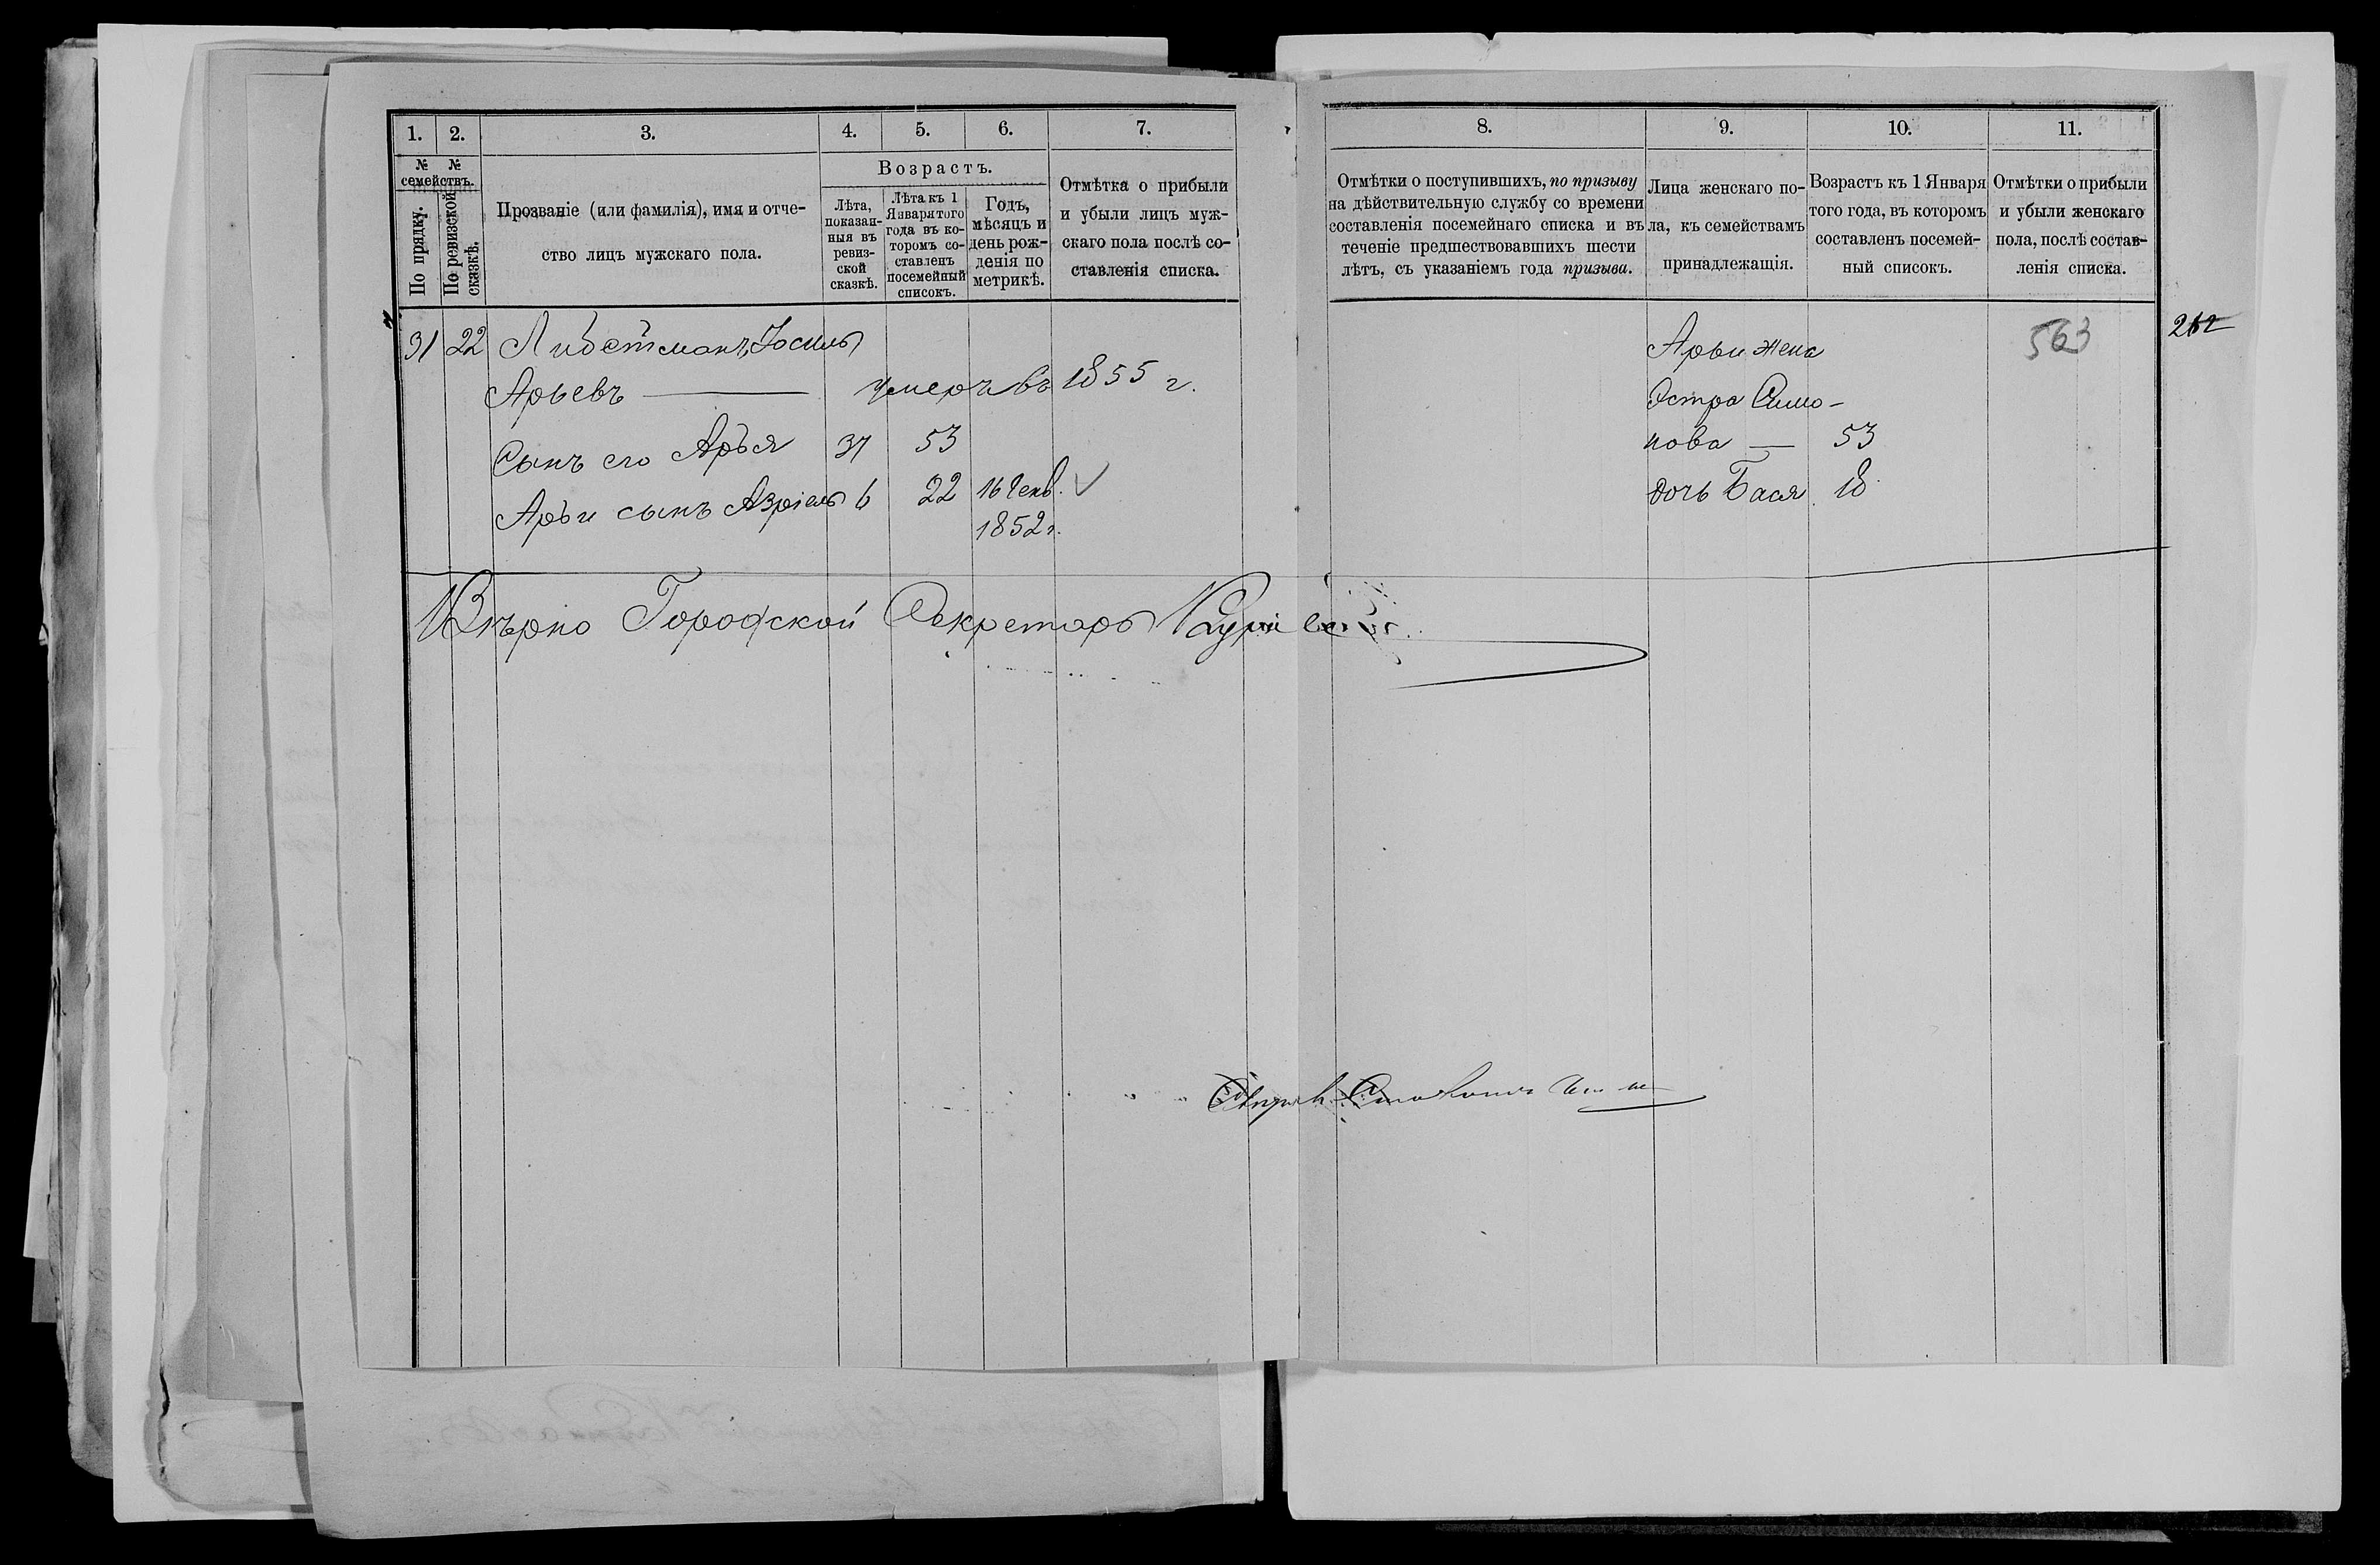 1. 2. 3. 4. 5. 6. 7.
№ № семействъ.
По прядку.
По ревизской сказкѣ.
Прозваніе (или фамилія), имя и отче-
ство лицъ мужскаго пола.
Возрастъ.
Лѣта,
показан-
ныя въ
ревиз-
ской
сказкѣ.
Лѣта къ 1
Января того
года въ ко-
торомъ со-
ставленъ
посемейный
списокъ.
Годъ,
мѣсяцъ и
день рож-
денія по
метрикѣ.
Отмѣтка о прибыли
и убыли лицъ муж-
скаго пола послѣ со-
ставленія списка.
31 22 Либстманъ, Іосиль
Арьевъ — умеръ въ 1855 г.
Сынъ его Арья 37 53
Арьи сынъ Азріель 6 22 16 Генв.
1852 г.
Вѣрно Городской Секретарь
8. 9. 10. 11.
Отмѣтки о поступившихъ, по призыву
на дѣйствительную службу со времени
составленія посемейнаго списка и въ
теченіе предшествовавшихъ шести
лѣтъ, съ указаніемъ года призыва.
Лица женскаго по-
ла, къ семействамъ
принадлежащія.
Возрастъ къ 1 Января
того года, въ которомъ
составленъ посемей-
ный списокъ.
Отмѣтки о прибыли
и убыли женскаго
пола, послѣ состав-
ленія списка.
Арьи жена
Эстра Симо-
нова — 53
дочь Бася 18
563